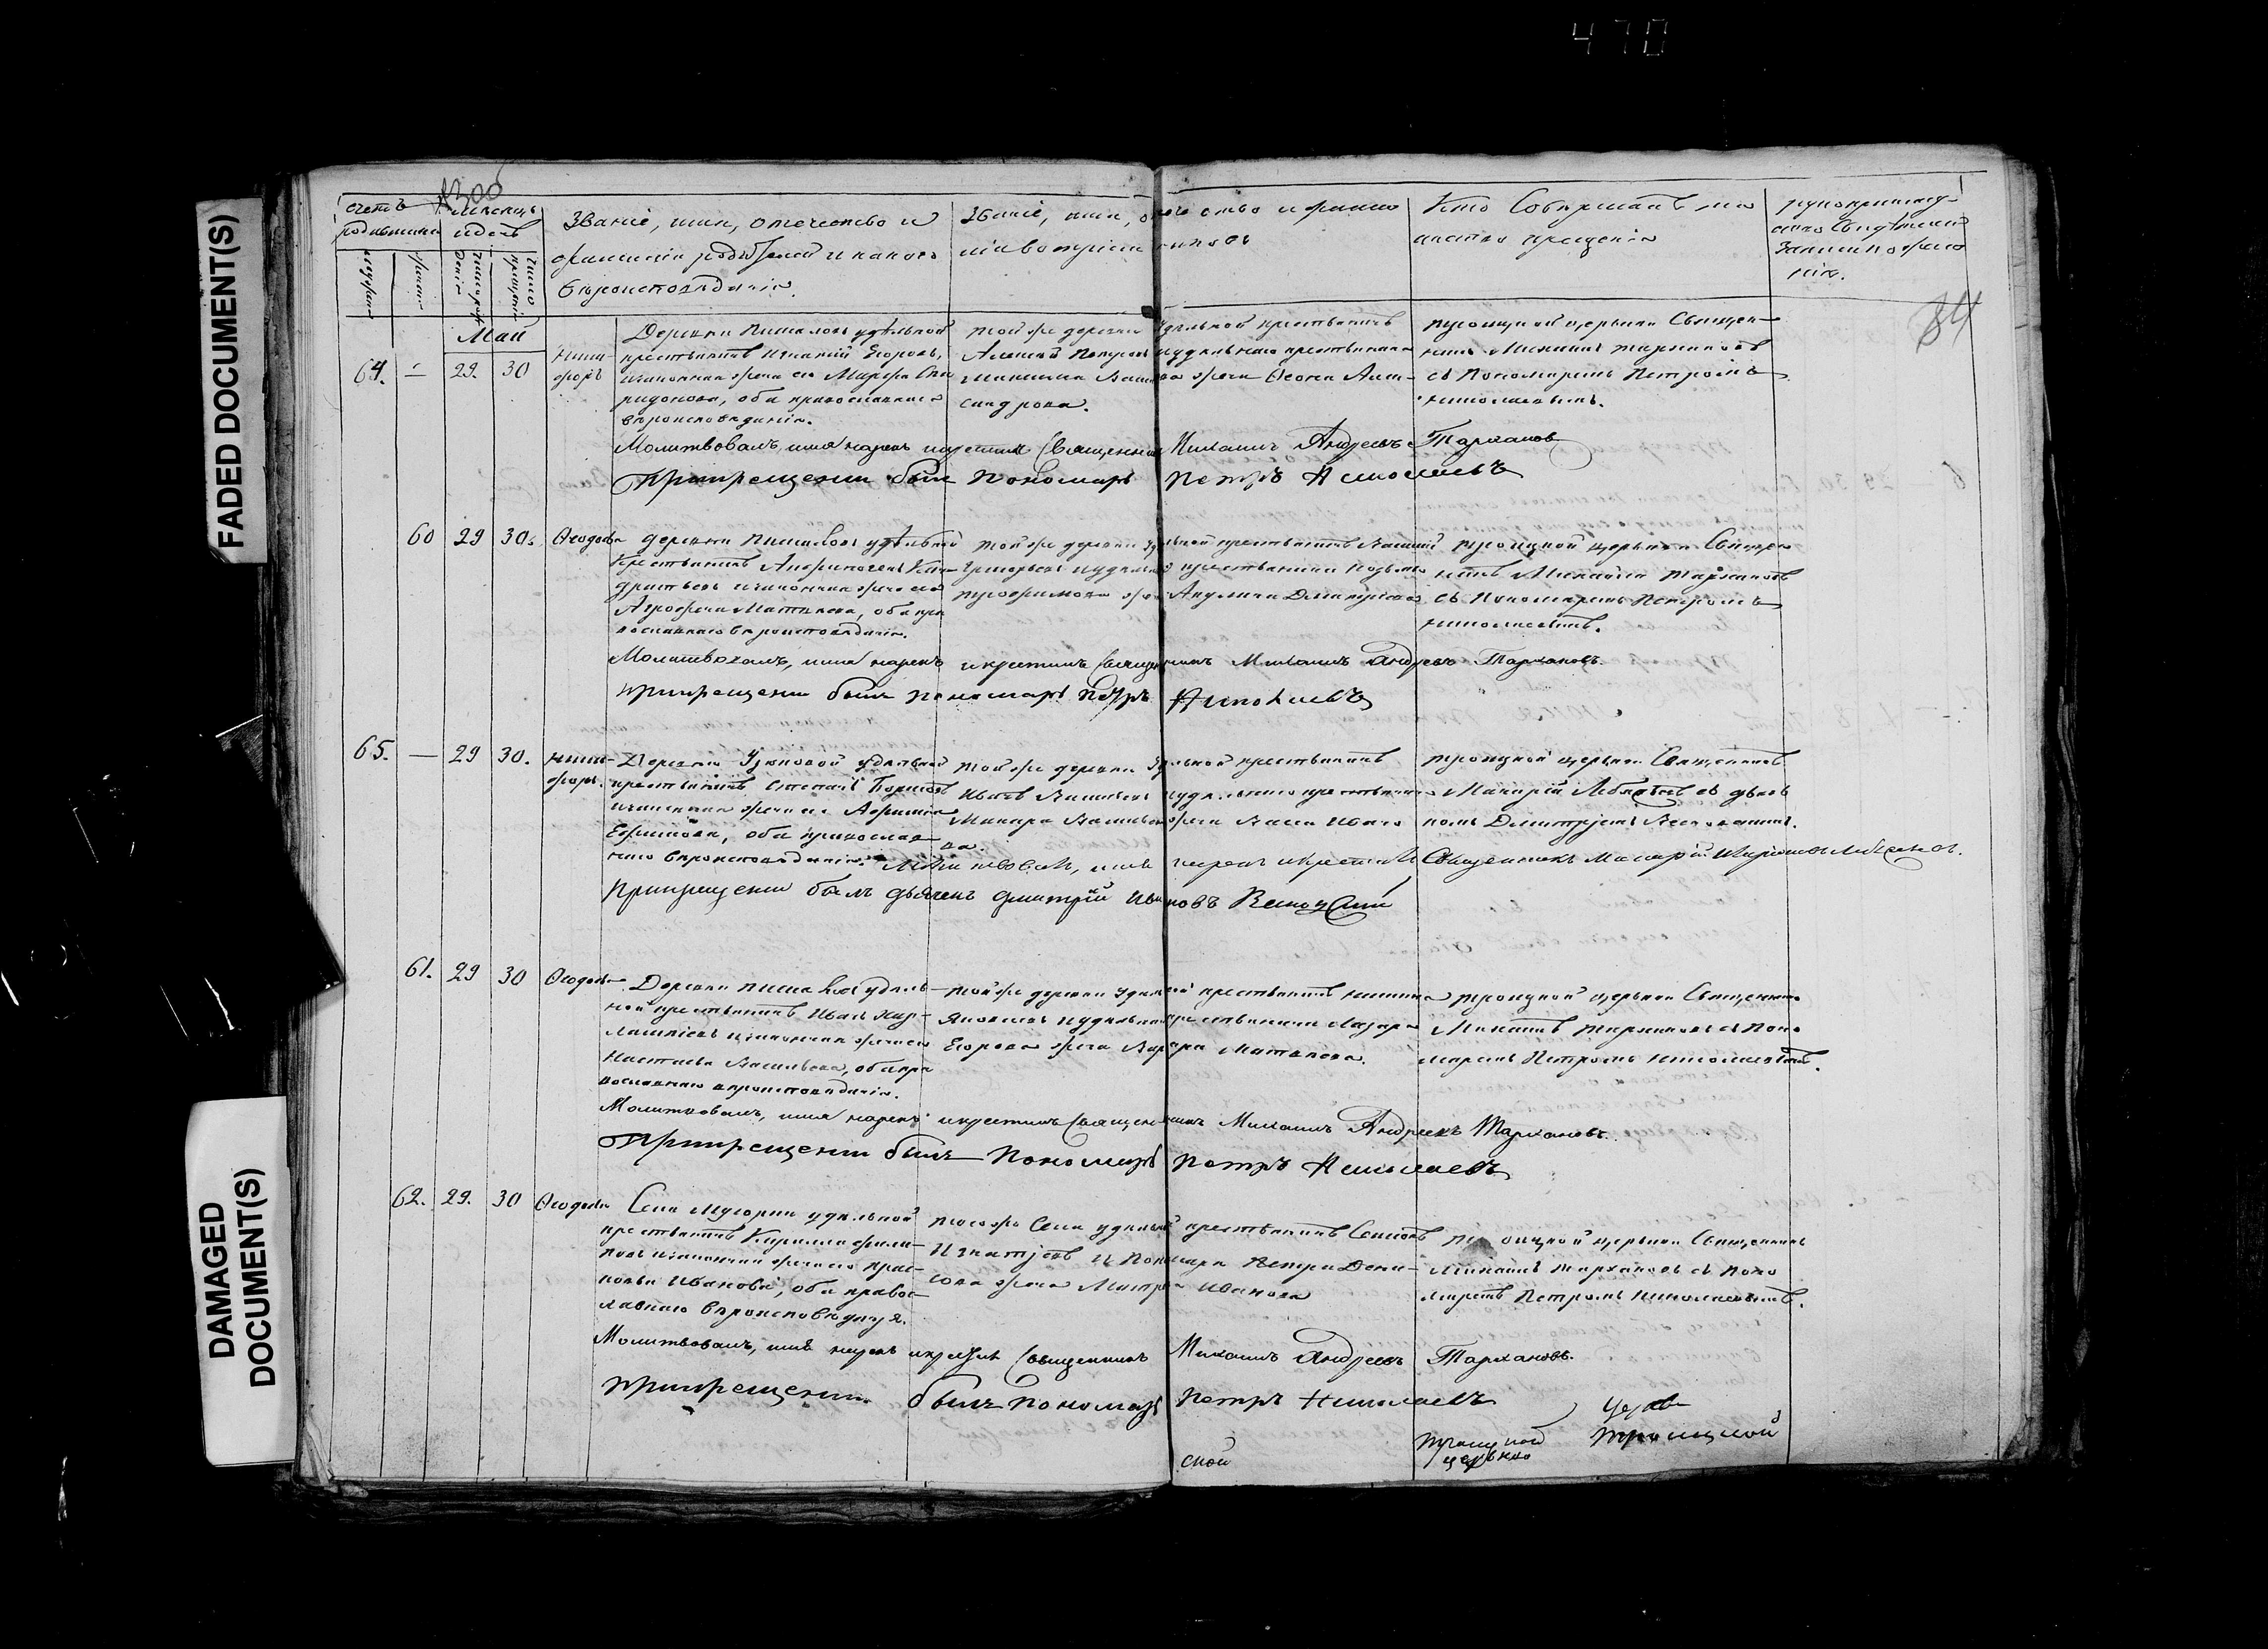 470
FADED DOCUMENT(S)
DAMAGED
DOCUMENT(S)
84
счетъ
родившихся
месяцъ
и день
Званіе, имя, отечество и
фамилія родителей и какого
вероисповеданія.
Званіе, имя, отечество и фами
лія воспріемниковъ
Кто совершалъ та
инство крещенія
рукоприклад
ство свидетелей
записи по жела
нію.
Май
64. — 29. 30
Ники-
форъ
Деревни удѣльной
крестьянинъ Игнатій Егоровъ,
и законная жена его Марфа Спи
ридонова, оба православнаго
вероисповеданія.
той же деревни удельной крестьянинъ
Алексей и удельнаго крестьянина
Максима жена Ѳеона Алек-
сандрова.
троицкой церькви Священ-
никъ Михаилъ Тархановъ
съ Пономаремъ Петромъ
Николаевымъ.
Молитвовалъ, имя нарекъ и крестилъ Священникъ Михаилъ Андреевъ Тархановъ
При крещении былъ Пономарь Петръ Николаевъ
60 29 30.
Ѳеодосья
деревни удѣльной
Крестьянинъ Кон-
дратьевъ и законная жена его
Агрофена Матвеева, оба пра
вославнаго вероисповеданія.
той же деревни удельной крестьянинъ Василий
Григорьевъ и удельнаго крестьянина Козьмы
Трофимова жена Акулина Дмитриева
троицкой церькви Священ
никъ Михаилъ Тархановъ
съ Пономаремъ Петромъ
Николаевымъ.
Молитвовалъ, имя нарекъ и крестилъ Священникъ Михаилъ Андреевъ Тархановъ.
при крещении былъ пономарь Петръ Николаевъ
65. — 29 30.
Ники-
форъ.
Деревни удельной
крестьянинъ Степанъ
и законная жена его Афимия
Ефимова, оба православ-
наго вероисповеданія.
той же деревни удельной крестьянинъ
Иванъ Васильевъ и удельнаго крестьянина
Макара Васильева жена Васса Ивано
ва.
троицкой церькви Священникъ
Макарій съ дьяч
комъ Дмитріемъ
Молитвовалъ, имя нарекъ и крестилъ Священникъ Макарій
При крещении былъ дьячекъ Дмитрій Ивановъ
61. 29 30
Ѳеодосья
Деревни удель-
ной крестьянинъ Иванъ Хар-
лампіевъ и законная жена его
Настасья Васильева, оба пра
вославнаго вероисповеданія.
той же деревни удельной крестьянинъ Никита
Яковлевъ и удельнаго крестьянина Лазаря
Егорова жена Варвара Матвеева.
троицкой церькви Священникъ
Михаилъ Тархановъ съ Поно
маремъ Петромъ Николаевымъ.
Молитвовалъ, имя нарекъ и крестилъ Священникъ Михаилъ Андреевъ Тархановъ.
При крещении былъ Пономарь Петръ Николаевъ
62. 29. 30
Ѳеодосья
Села удельной
крестьянинъ Кирилла Фили-
повъ и законная жена его Прас-
ковья Иванова, оба правос-
лавнаго вероисповедунія.
того же Села удельной крестьянинъ Семенъ
Игнатіевъ и Пономаря Петра Дени-
сова жена Матрена Иванова
троицкой церькви Священникъ
Михаилъ Тархановъ съ Поно
маремъ Петромъ Николаевымъ.
Молитвовалъ, имя нарекъ и крестилъ Священникъ Михаилъ Андреевъ Тархановъ.
При крещении былъ Пономарь Петръ Николаевъ
ской
троицкой
церькви
Троицкой